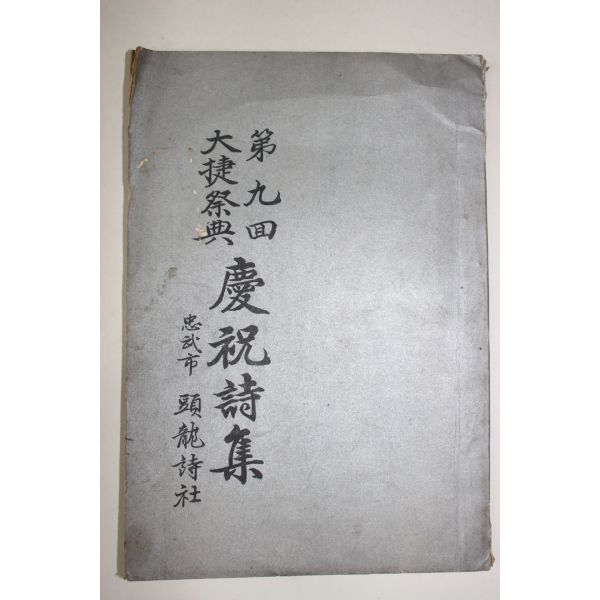 第九回
大捷祭典
慶祝詩集
忠武市
頭龍詩社